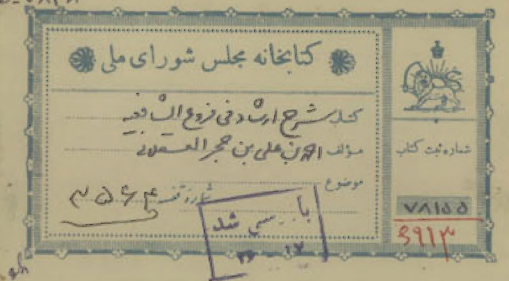 کتابخانه مجلس شورای ملی
کتاب شرح ارشاد فی فروع الشافعیه
مؤلف احمد بن علی بن حجر العسقلانی
موضوع
شماره قفسه ۳۵۶۴
بازرسی شد
شماره ثبت کتاب
۷۸۱۵۵